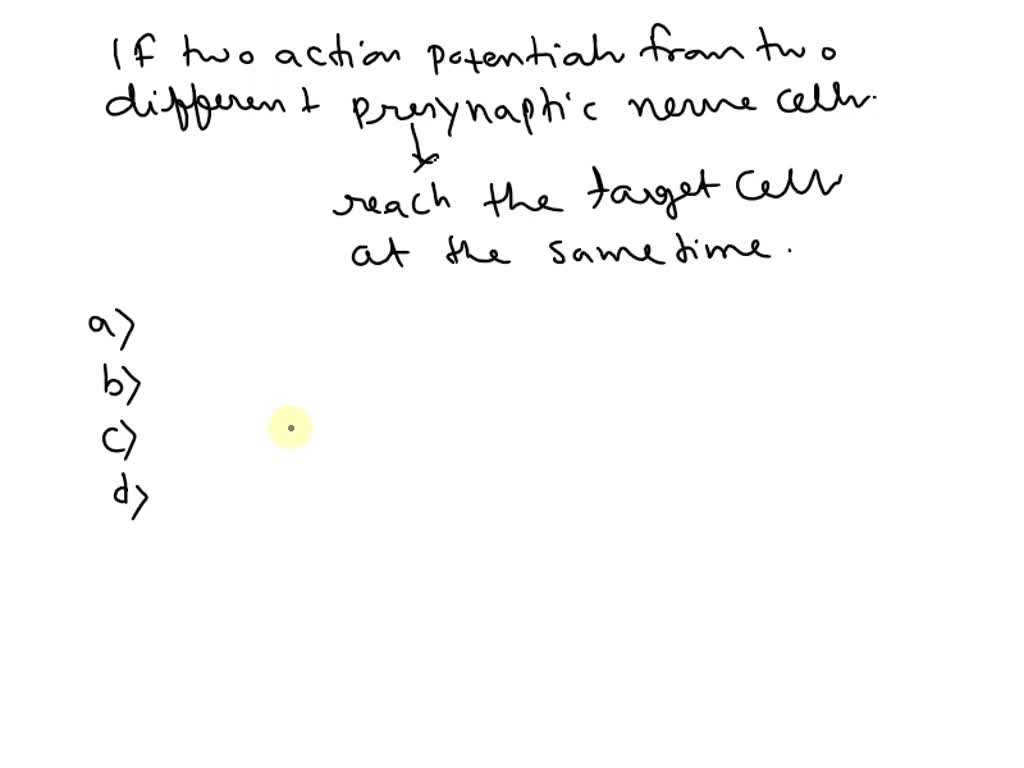 If two action potentials from two
different presynaptic nerve cells.
reach the target cells
at the same time.
a)
b)
c)
d)